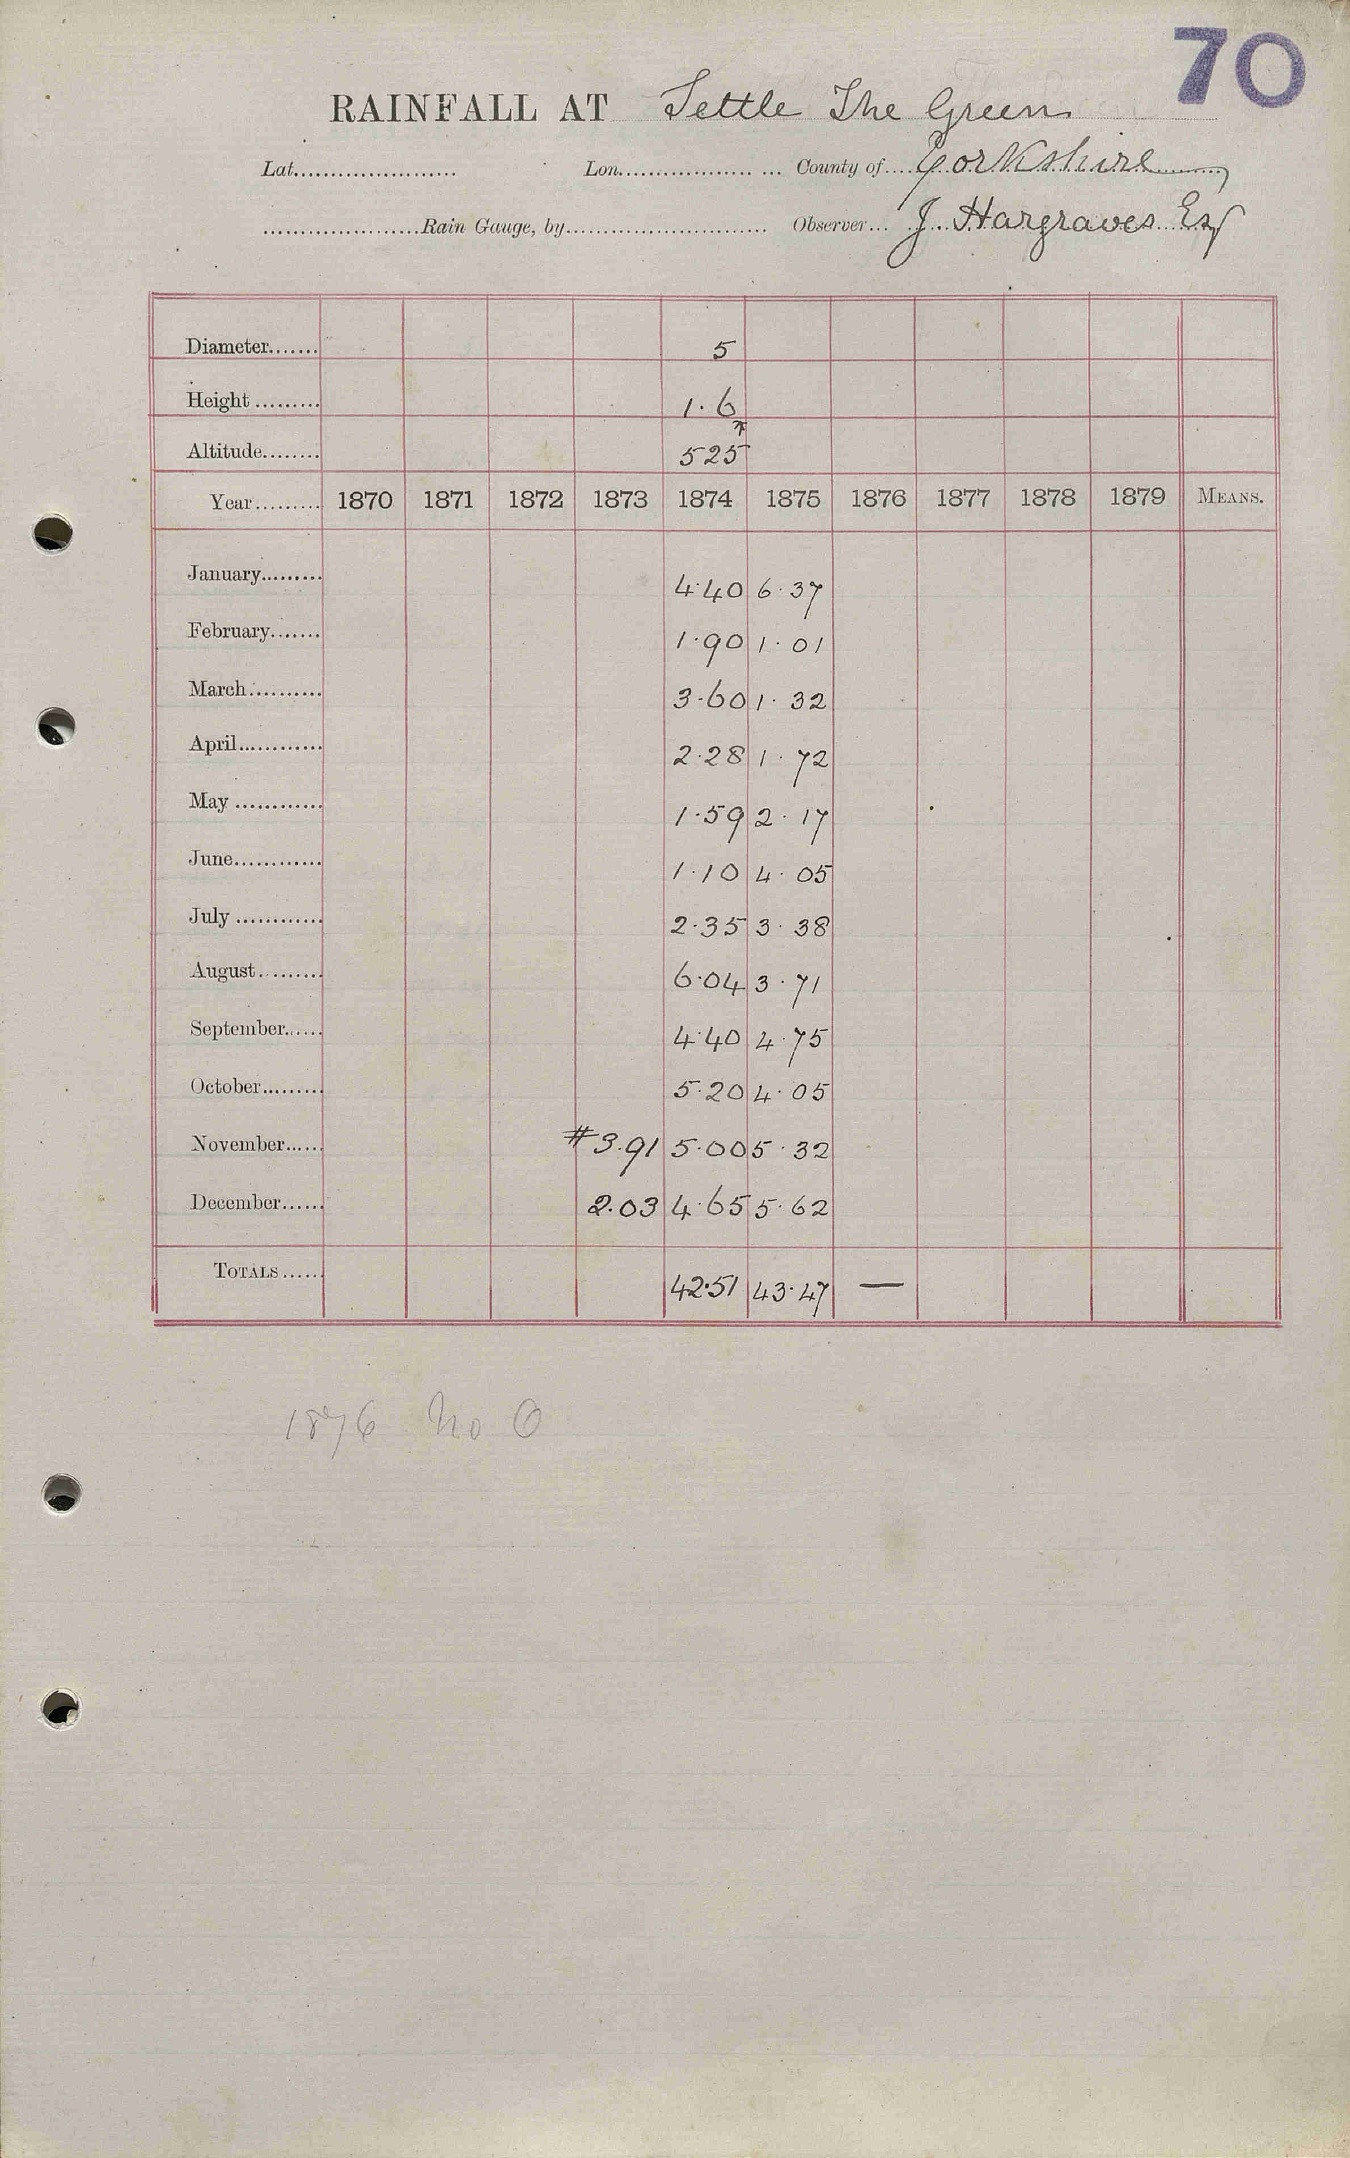 70
RAINFALL AT Settle The Green
Lat. Lon. County of Yorkshire
Rain Gauge, by Observer J. Hargraves Esq
Diameter 5
Height 1.6
Altitude 525
Year 1870 1871 1872 1873 1874 1875 1876 1877 1878 1879 MEANS.
January 4.40 6.37
February 1.90 1.01
March 3.60 1.32
April 2.28 1.72
May 1.59 2.17
June 1.10 4.05
July 2.35 3.38
August 6.04 3.71
September 4.40 4.75
October 5.20 4.05
November #3.91 5.00 5.32
December 2.03 4.65 5.62
TOTALS 42.51 43.47 —
1876 No O